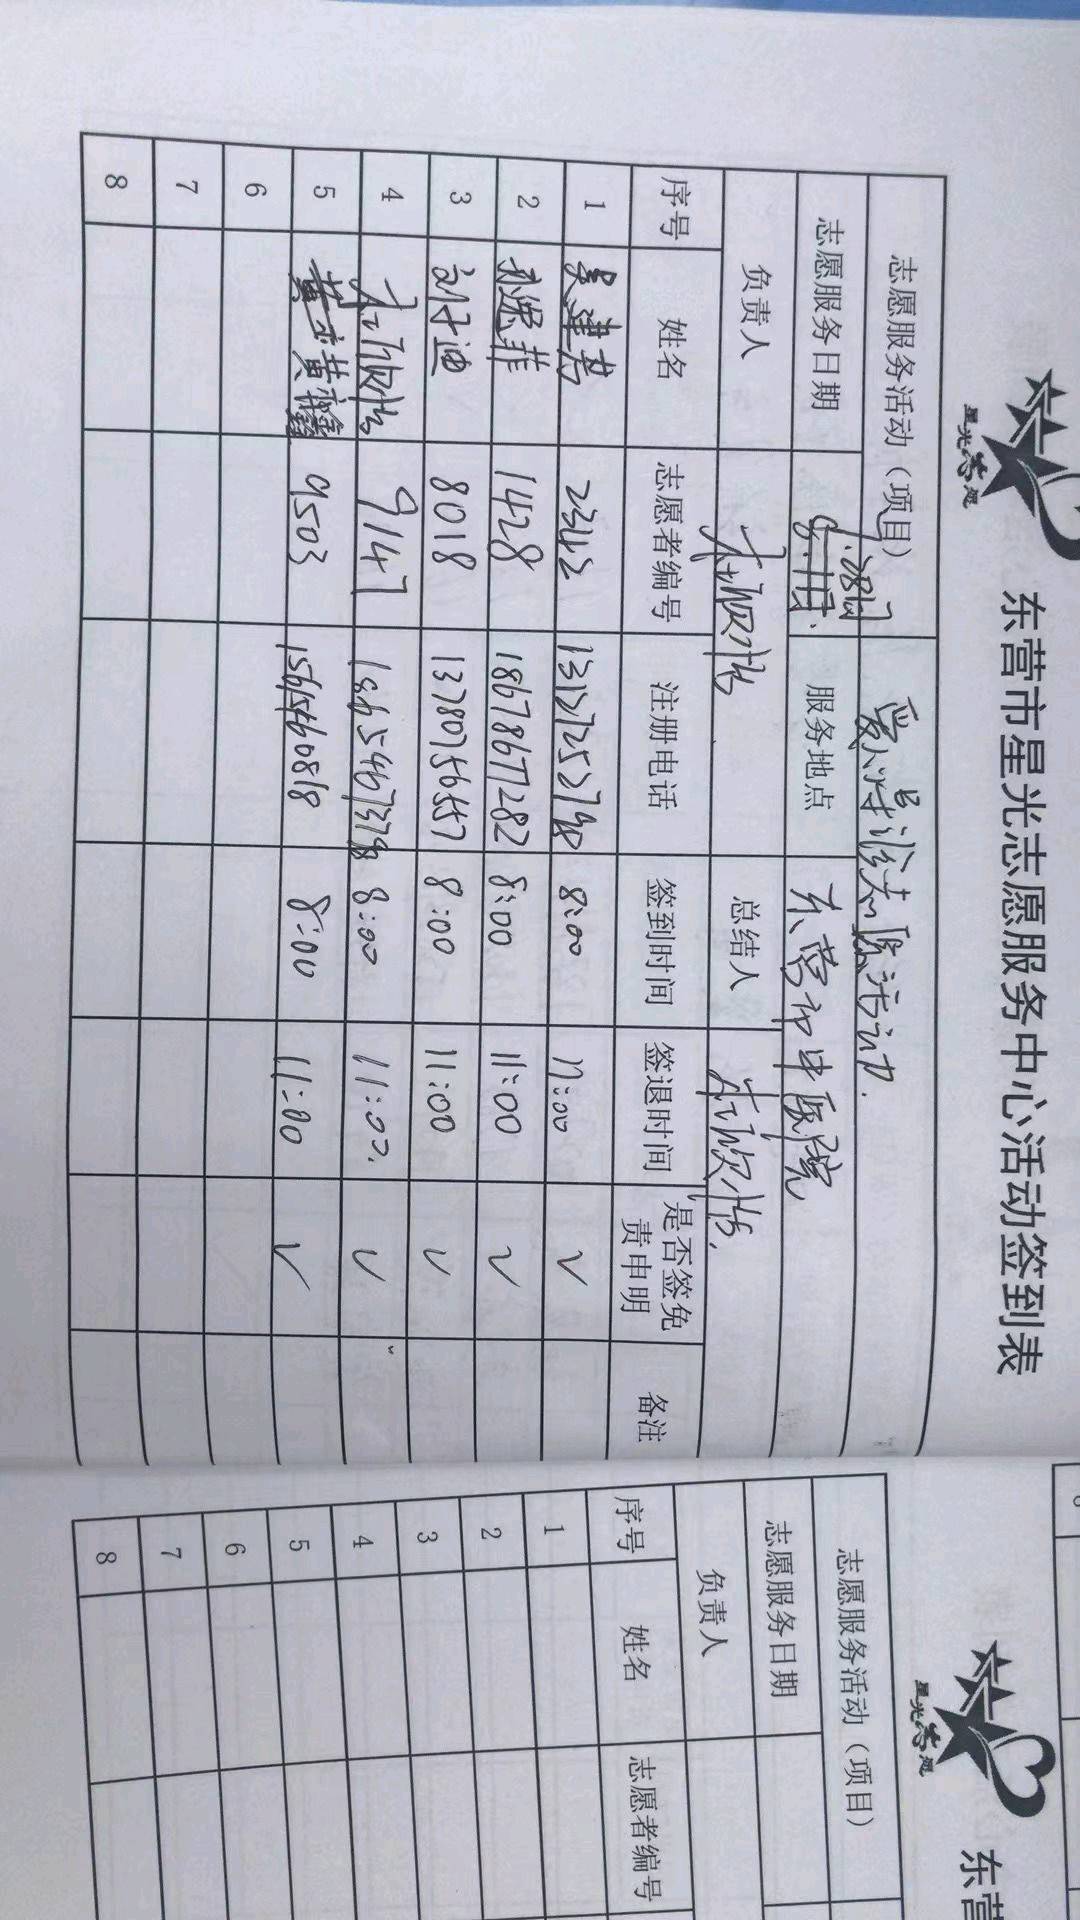 星光学苑
东营市星光志愿服务中心活动签到表
志愿服务活动（项目）
志愿服务日期 服务地点 东营市中医院
负责人 总结人
序号 姓名 志愿者编号 注册电话 签到时间 签退时间 是否签免责申明 备注
1 吴建芳 2342 8:00 11:00 √
2 孙逸菲 1428 18678677282 8:00 11:00 √
3 刘子迪 8018 13780756557 8:00 11:00 √
4 9147 18654673798 8:00 11:00. √
5 9503 15615460818 8:00 11:00 √
6
7
8
东营
志愿服务活动（项目）
志愿服务日期
负责人
序号 姓名 志愿者编号
1
2
3
4
5
6
7
8